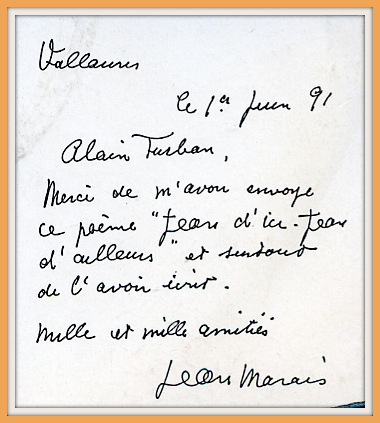 Vallauris
le 1er Juin 91
Alain Turban,
Merci de m'avoir envoyé
ce poème "Jean d'ici - Jean
d'ailleurs" et surtout
de l'avoir écrit.
Mille et mille amitiés
Jean Marais